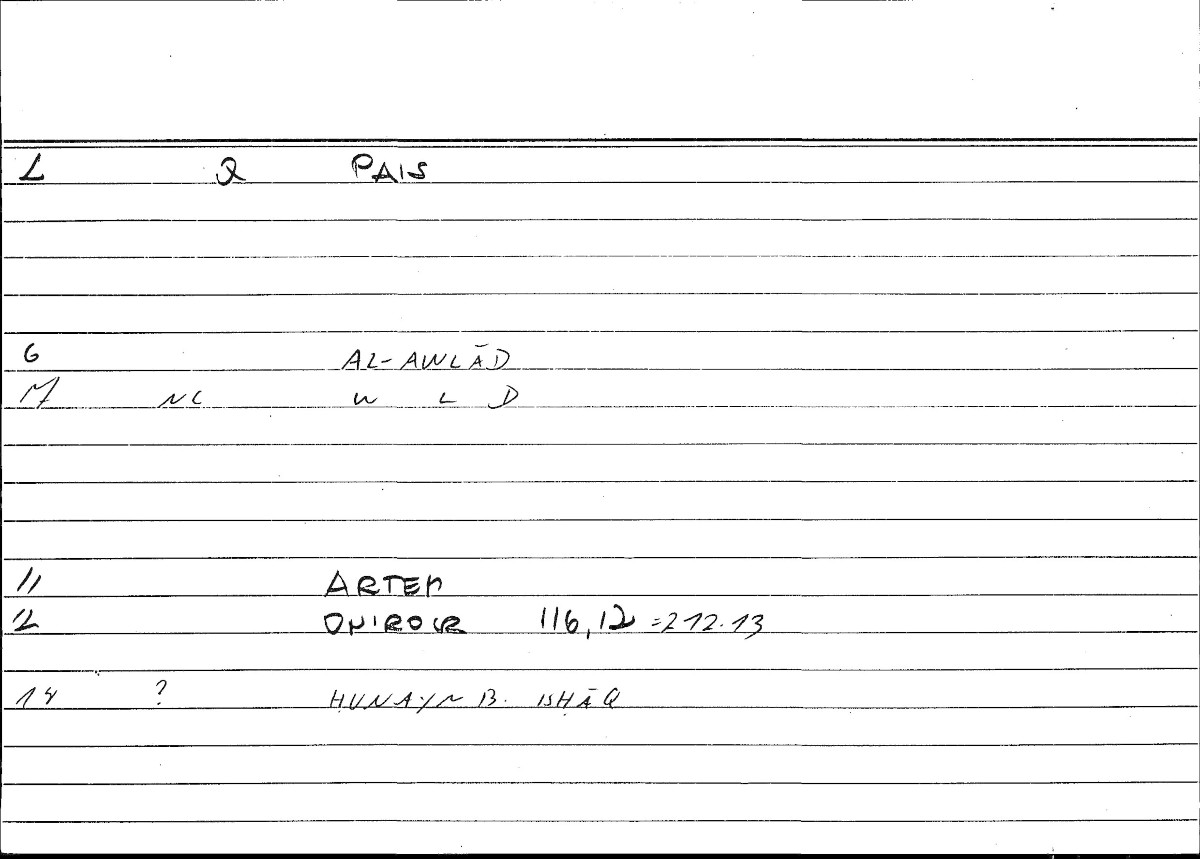 L 2 PAIS
6 AL-AWLĀD
17 NC W L D
11 ARTEM
12 ONIROCR 116,12 =212.13
18 ? HUNAYN B. ISHĀQ